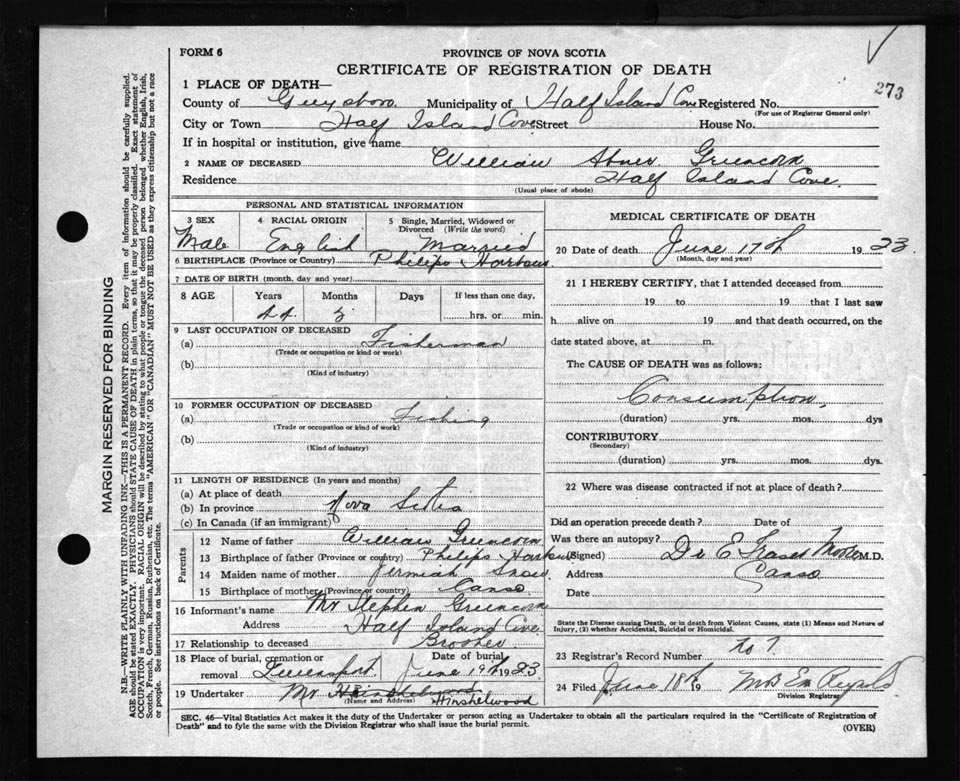 273
FORM 6
PROVINCE OF NOVA SCOTIA
CERTIFICATE OF REGISTRATION OF DEATH
1 PLACE OF DEATH—
County of Guysboro. Municipality of Half Island Cove Registered No.
(For use of Registrar General only)
City or Town Half Island Cove Street House No.
If in hospital or institution, give name
2 NAME OF DECEASED William Abner Greencorn
Residence Half Island Cove.
(Usual place of abode)
PERSONAL AND STATISTICAL INFORMATION
3 SEX
Male
4 RACIAL ORIGIN
English
5 Single, Married, Widowed or Divorced (Write the word)
Married
6 BIRTHPLACE (Province or Country) Philips Harbour.
7 DATE OF BIRTH (month, day and year)
8 AGE Years Months Days If less than one day,
44 hrs. or min.
9 LAST OCCUPATION OF DECEASED
(a) Fisherman
(Trade or occupation or kind or work)
(b)
(Kind of industry)
10 FORMER OCCUPATION OF DECEASED
(a) Fishing
(Trade or occupation or kind or work)
(b)
(Kind of industry)
11 LENGTH OF RESIDENCE (In years and months)
(a) At place of death
(b) In province Nova Scotia
(c) In Canada (if an immigrant)
Parents
12 Name of father William Greencorn
13 Birthplace of father (Province or country) Philips Harbour
14 Maiden name of mother Jermiah Snow
15 Birthplace of mother (Province or country) Canso.
16 Informant's name Mr Stephen Greencorn
Address Half Island Cove
17 Relationship to deceased Brother
18 Place of burial, cremation or removal Queensport. Date of burial June 19th 1923
19 Undertaker Mr Hinshelwood
(Name and Address) Hinshelwood
MEDICAL CERTIFICATE OF DEATH
20 Date of death June 17th 1923.
(Month, day and year)
21 I HEREBY CERTIFY, that I attended deceased from
19 to 19 that I last saw
h alive on 19 and that death occurred, on the
date stated above, at m.
The CAUSE OF DEATH was as follows:
Consumption,
(duration) yrs. mos. dys
CONTRIBUTORY
(Secondary)
(duration) yrs. mos. dys.
22 Where was disease contracted if not at place of death?
Did an operation precede death? Date of
Was there an autopsy?
(Signed) Dr E Fraser M.D.
Address Canso
Date
State the Disease causing Death, or in death from Violent Causes, state (1) Means and Nature of
Injury, (2) whether Accidental, Suicidal or Homicidal.
23 Registrar's Record Number No 7.
24 Filed June 18th 19
Division Registrar
SEC. 46—Vital Statistics Act makes it the duty of the Undertaker or person acting as Undertaker to obtain all the particulars required in the "Certificate of Registration of
Death" and to fyle the same with the Division Registrar who shall issue the burial permit.
(OVER)
MARGIN RESERVED FOR BINDING
N.B.—WRITE PLAINLY WITH UNFADING INK—THIS IS A PERMANENT RECORD. Every item of information should be carefully supplied.
AGE should be stated EXACTLY. PHYSICIANS should STATE CAUSE OF DEATH in plain terms, so that it may be properly classified. Exact statement of
OCCUPATION is very important. RACIAL ORIGIN will be described by stating to what people or tongue the deceased person belonged whether English, Irish,
Scotch, French, German, Russian, Ruthenian, etc. The terms "AMERICAN" OR "CANADIAN" MUST NOT BE USED as they express citizenship but not a race
or people. See instructions on back of Certificate.